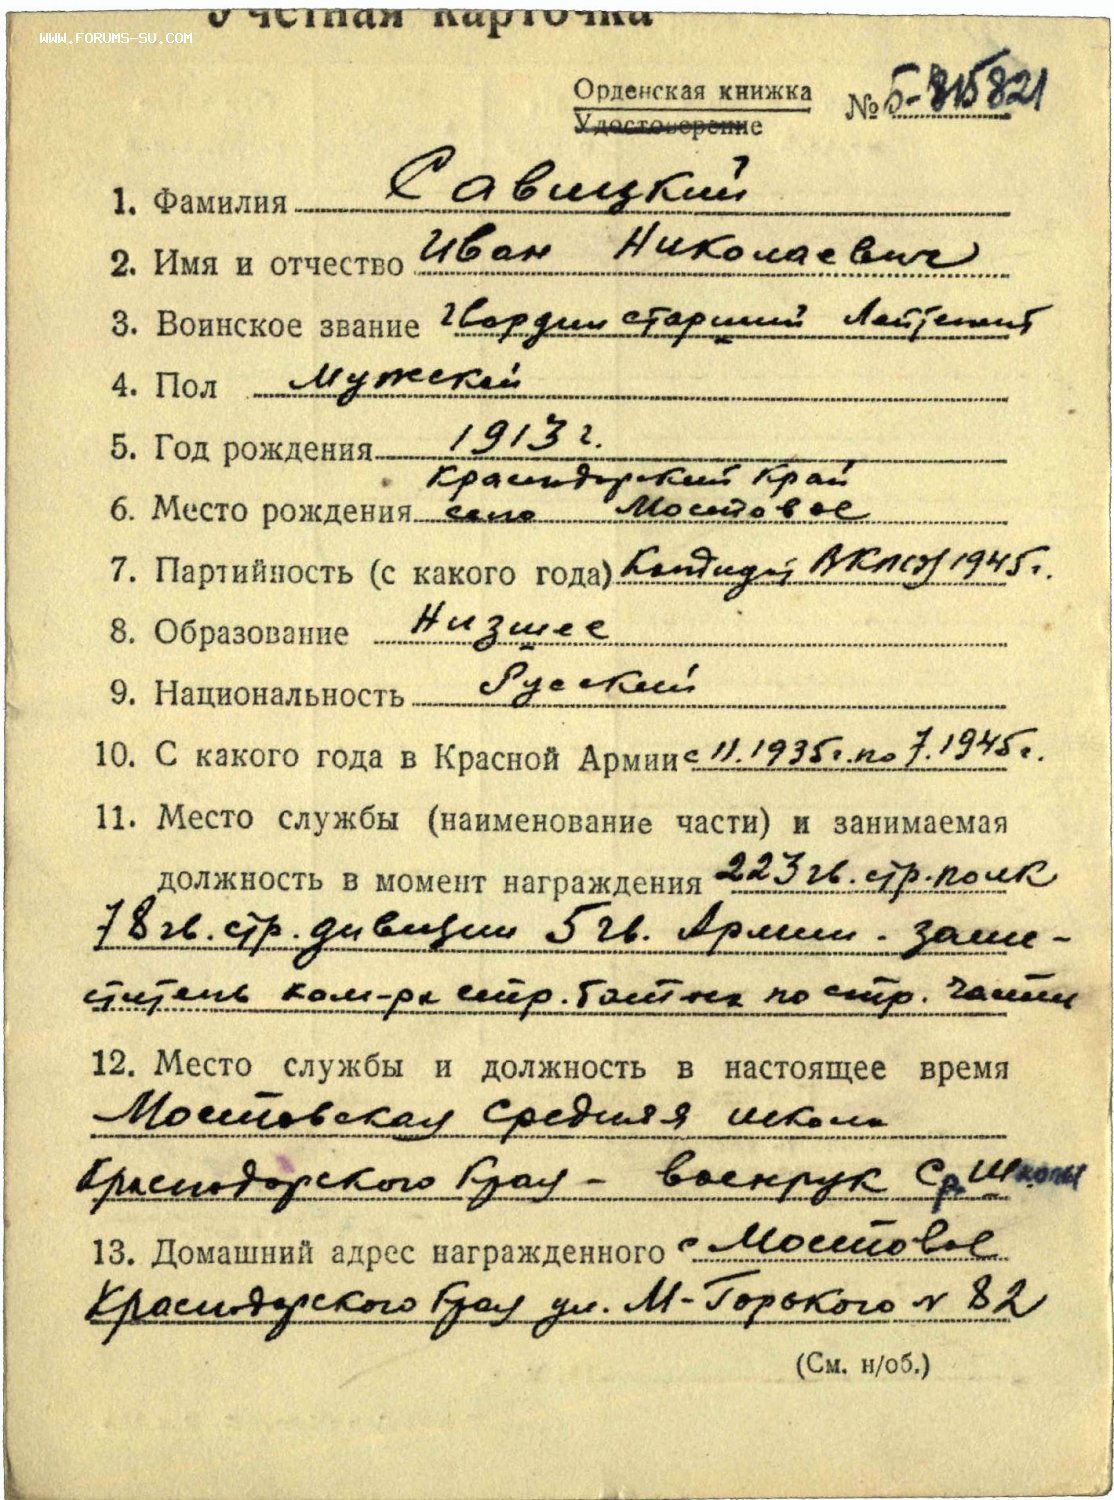 Учетная карточка
WWW.FORUMS-SU.COM
Орденская книжка № Б-815821
Удостоверение
1. Фамилия Савицкий
2. Имя и отчество Иван Николаевич
3. Воинское звание гвардии старший Лейтенант
4. Пол Мужской
5. Год рождения 1913 г.
Краснодарский Край
6. Место рождения село Мостовое
7. Партийность (с какого года) Кандидат ВКП(б) 1945 г.
8. Образование Низшее
9. Национальность Русский
10. С какого года в Красной Армии с 11.1935 г. по 7.1945 г.
11. Место службы (наименование части) и занимаемая
должность в момент награждения 223 гв. стр. полк
78 гв. стр. дивизии 5 гв. Армии - заме-
ститель ком-ра стр. бат-на по стр. части
12. Место службы и должность в настоящее время
Мостовская средняя школа
Краснодарского Края - военрук Ср. Школы
13. Домашний адрес награжденного с Мостовое
Краснодарского Края ул. М-Горького № 82
(См. н/об.)